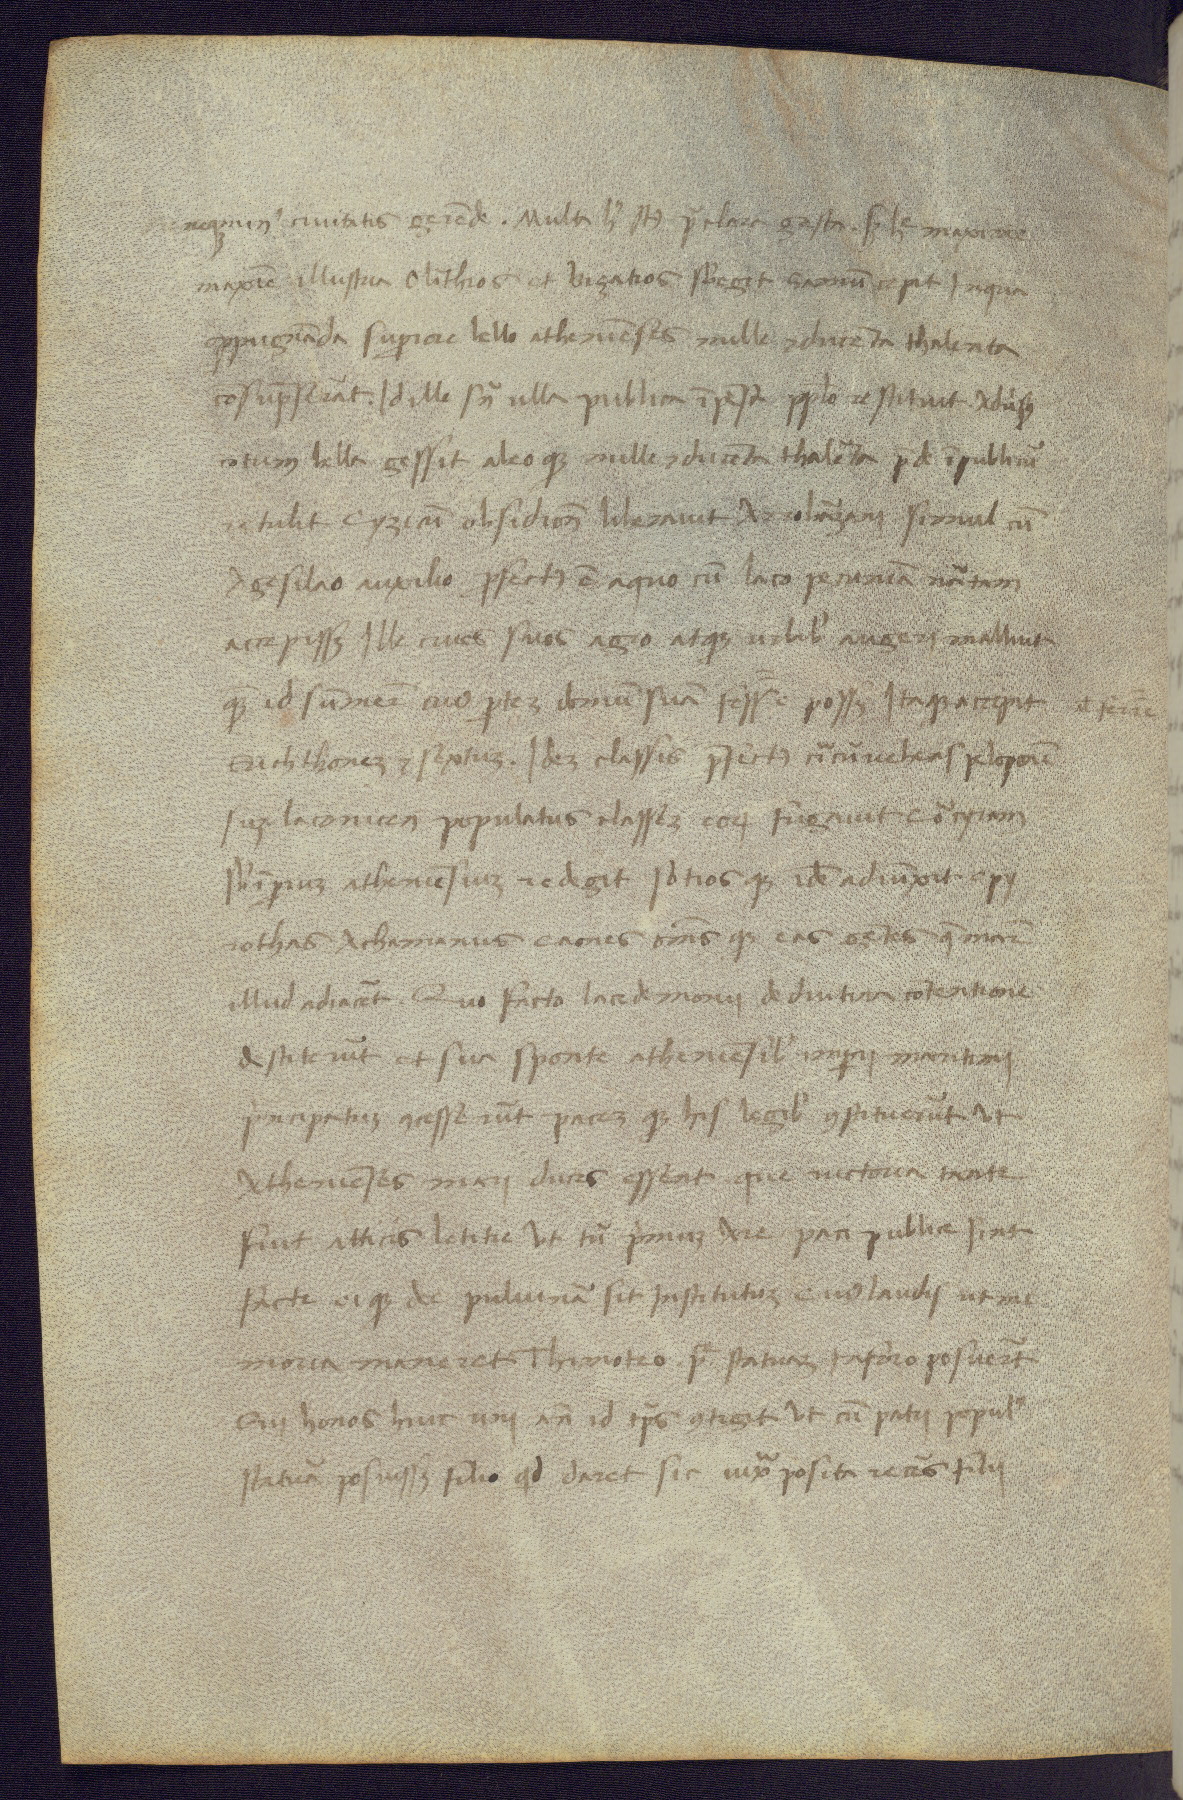 neq minus civitatis gerēde . Multa h' st' p̄clara gesta . sꝫ hec maxime
maxīe illustria Olīthios et bizātios sbegit samū cepit Inqua
oppugnāda superiore bello atheniēses mille & ducēta thalenta
cōsūpserāt . Id ille sin̄ ulla publica īpēsa pplo restituit Adūsꝫ
cotum bella gessit ab eoqꝫ mille & ducēta thalēta p̄de ī publicū
retulit Cyzicū obsidiōe liberavit Ariobarzani simul cū
Agesilao auxilio p̄fectꝰ ē aquo cū laco pecuniā nūatam
accepissꝫ Ille cives suos agro atqꝫ urbibꝰ augeri malluit
qꝫ id sūmere cuiꝰ ptez domū suā ferre possꝫ Itaqꝫ accepit
et ferre
Erichthonez & sestuz . Idez classis p̄fectꝰ circūvehens pelopone
suz laconicen populatus classez eoꝝ fugavit Corcyram
sb īperiuz atheniēsiuz redegit sotiosqꝫ idē adiūxit epy
rothas Achamanus caones omēsqꝫ eas gētes q̄ mare
illud adiacēt . Quo facto lacedemonii de diutina cōtentione
destiterūt et sua sponte atheniēsibꝰ imperii maritimi
principatuz cōcesserūt pacez qꝫ his legibꝰ cōstituerūt Ut
Athenienses mari duces essent que victoria tante
fuit atticis letitie Ut tū primuz Are paci publice sint
facte eiqꝫ dee pulvinar sit Institutuz Cuiꝰ laudis ut me
moria maneret Thimoteo p̄ statuaz Inforo posuerūt
Qui honos huic uni an̄ id tp̄s cōtigit Ut cū patri populꝰ
statuā posuissꝫ filio qd daret sic iuxta posita recēs filii